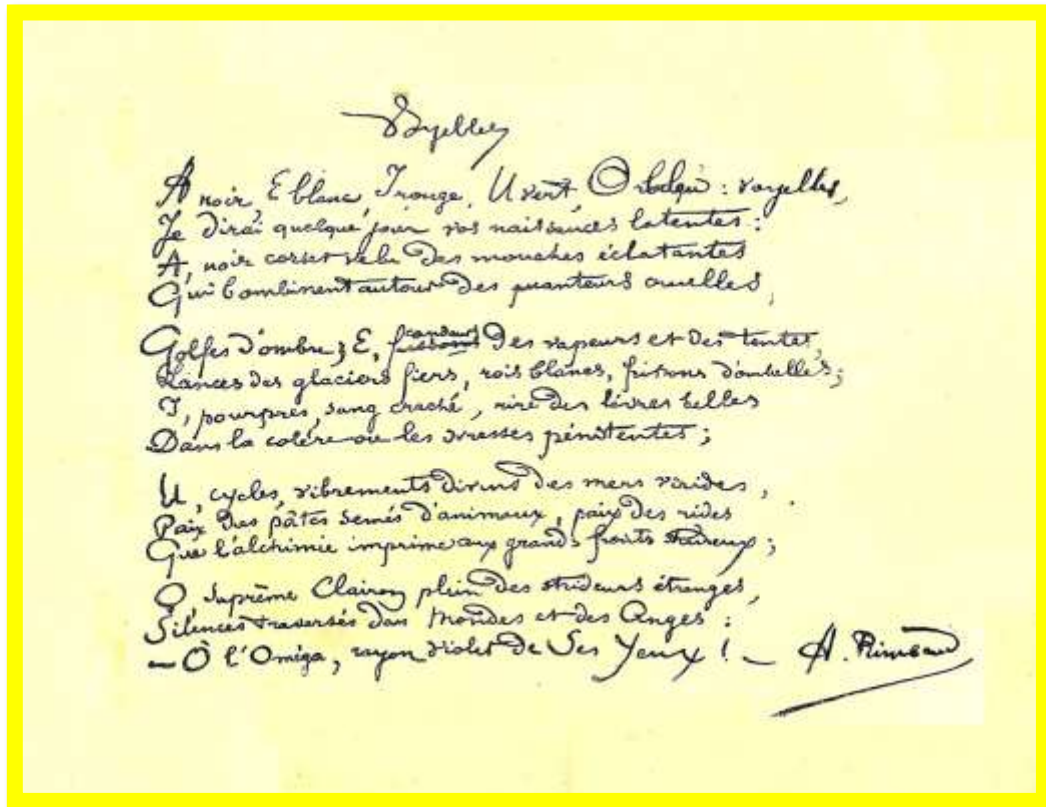 Voyelles
A noir, E blanc, I rouge, U vert, O : voyelles,
Je dirai quelque jour vos naissances latentes :
A, noir corset velu des mouches éclatantes
Qui bombinent autour des puanteurs cruelles,
Golfes d'ombre ; E, candeurs des vapeurs et des tentes,
Lances des glaciers fiers, rois blancs, frissons d'ombelles ;
I, pourpres, sang craché, rire des lèvres belles
Dans la colère ou les ivresses pénitentes ;
U, cycles, vibrements divins des mers virides,
Paix des pâtis semés d'animaux, paix des rides
Que l'alchimie imprime aux grands fronts ;
O, suprême Clairon plein des strideurs étranges,
Silences traversés des Mondes et des Anges :
— O l'Oméga, rayon violet de Ses Yeux ! — A. Rimbaud